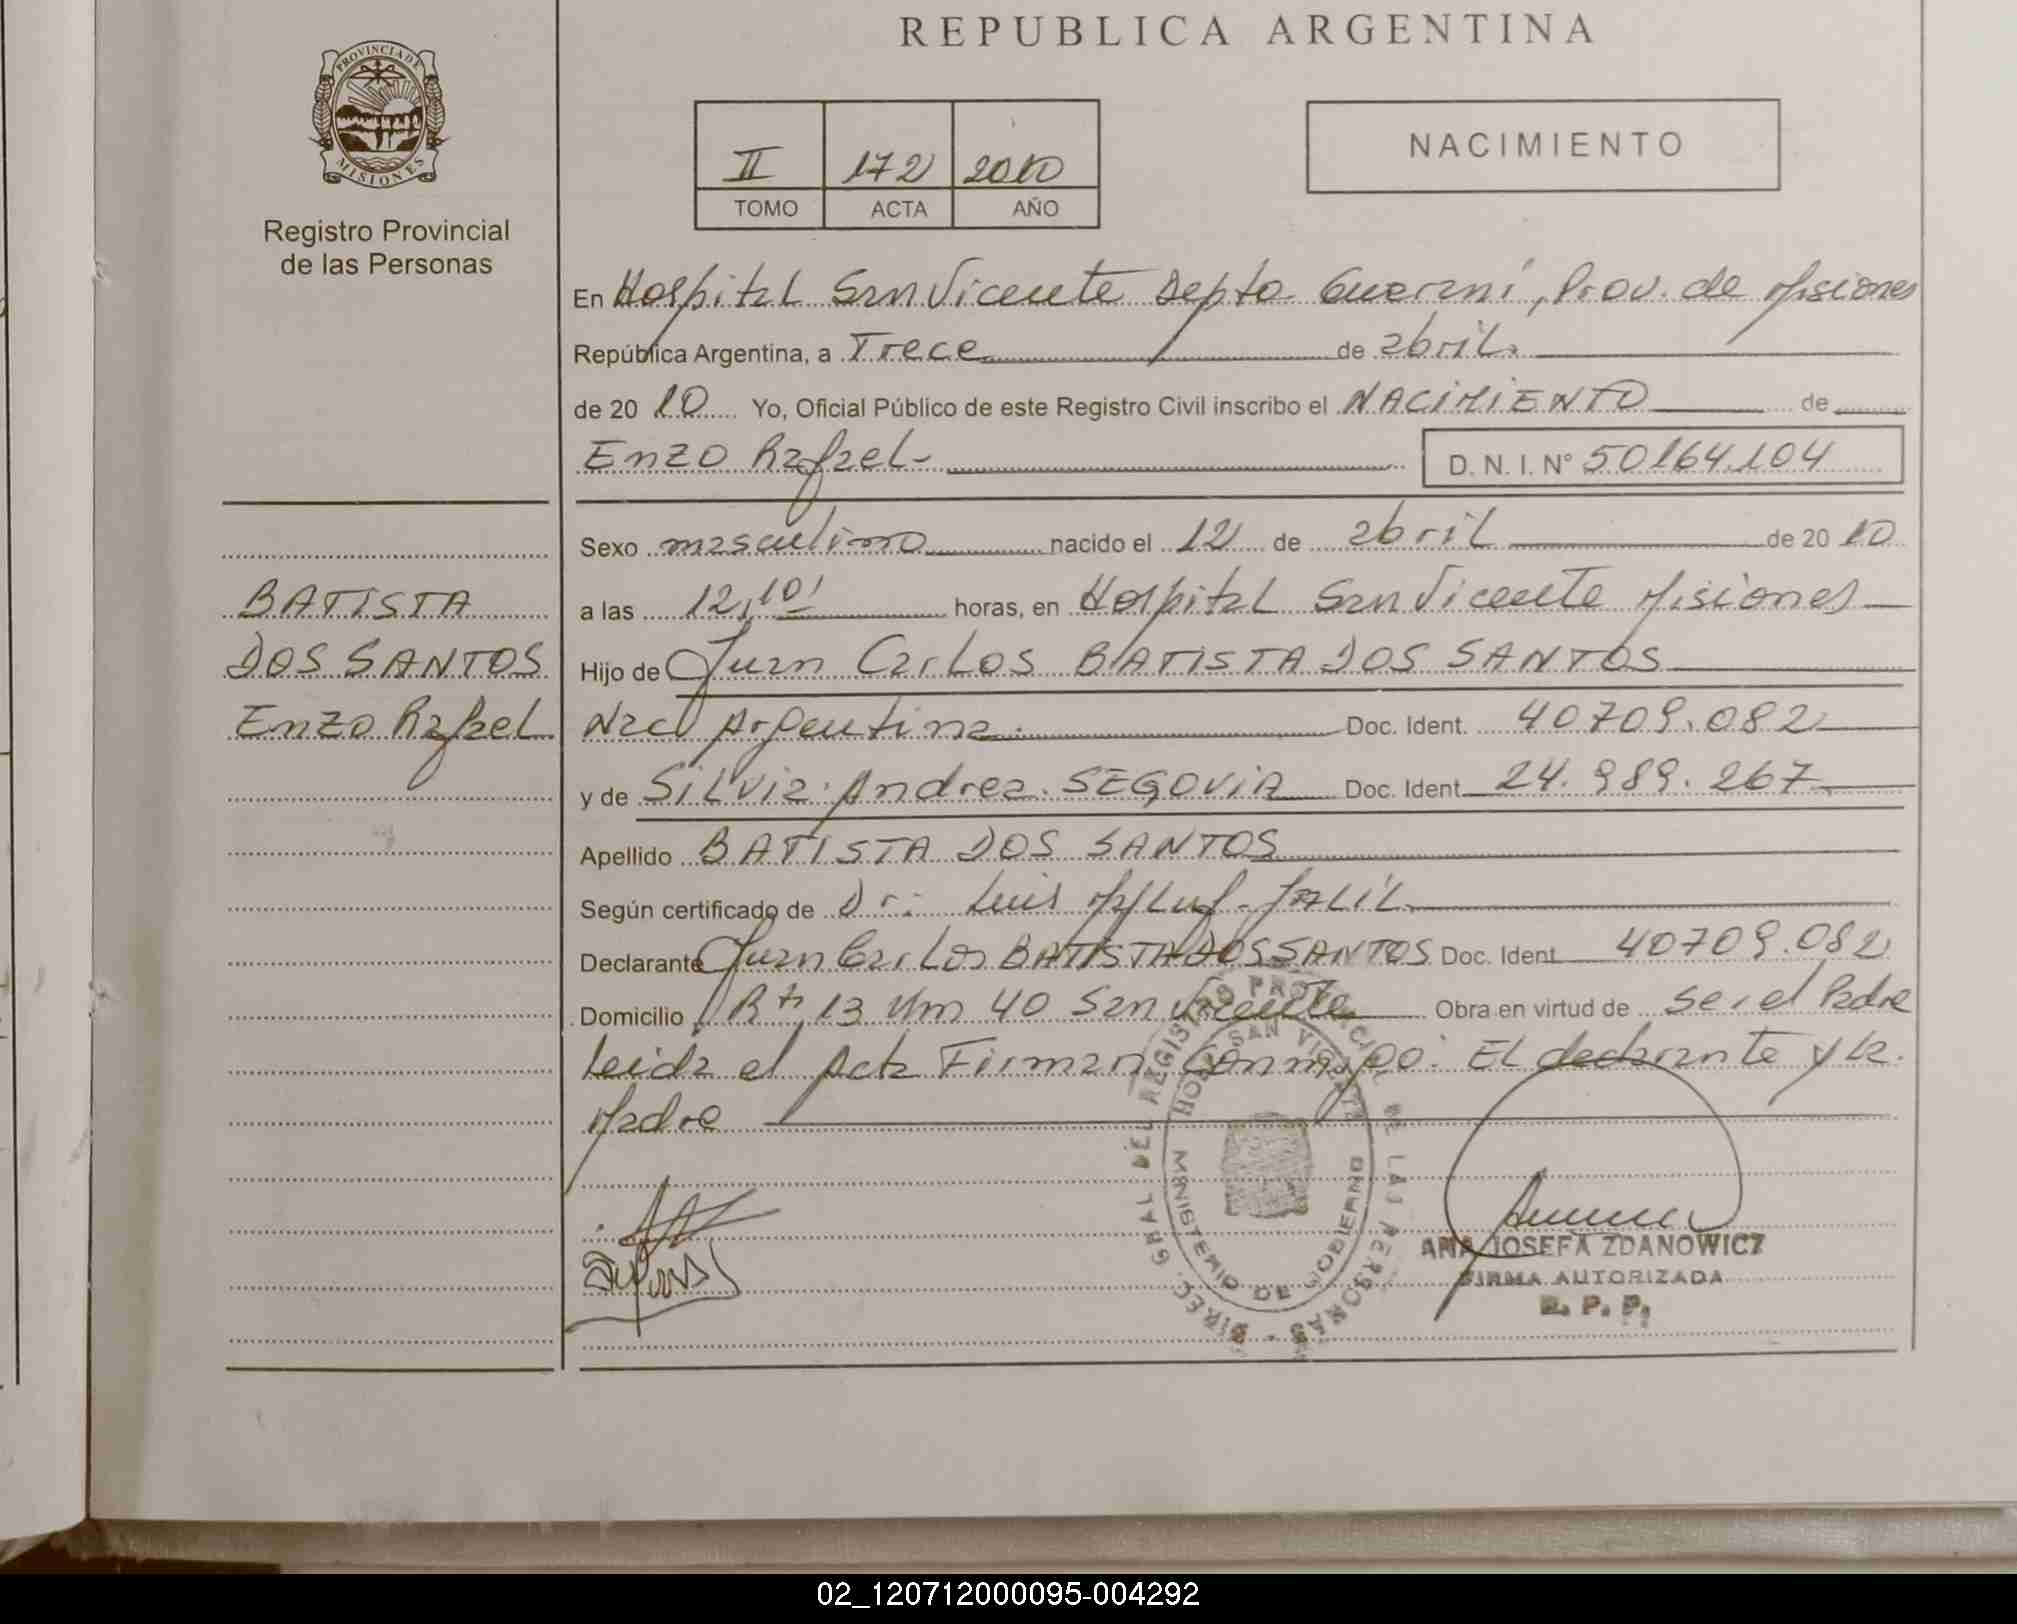 REPUBLICA ARGENTINA
PROVINCIA DE
MISIONES
Registro Provincial
de las Personas
II 172 2010
TOMO ACTA AÑO
NACIMIENTO
En Hospital San Vicente Depto Guaraní, Prov. de Misiones
República Argentina, a Trece de abril.
de 20 10 Yo, Oficial Público de este Registro Civil inscribo el NACIMIENTO de
Enzo Rafael- D. N. I. N° 50164.104
Sexo masculino nacido el 12 de abril de 20 10
a las 12,10' horas, en Hospital San Vicente Misiones
Hijo de Juan Carlos BATISTA DOS SANTOS
Nac Argentina. Doc. Ident. 40709.082
y de Silvia Andrea SEGOVIA Doc. Ident. 24.989.267
Apellido BATISTA DOS SANTOS
Según certificado de Dr: Luis JALIL
Declarante Juan Carlos BATISTA DOS SANTOS Doc. Ident 40709.082
Domicilio Rta 13 Km 40 San Vicente Obra en virtud de ser el Padre
Leida el Acta Firman Conmigo: El declarante y la
Madre
BATISTA
DOS SANTOS
Enzo Rafael
DIREC. GRAL DEL REGISTRO PROVINCIAL DE LAS PERSONAS
HOSP. SAN VICENTE
MINISTERIO DE GOBIERNO
ANA JOSEFA ZDANOWICZ
FIRMA AUTORIZADA
R. P. P.
02_120712000095-004292